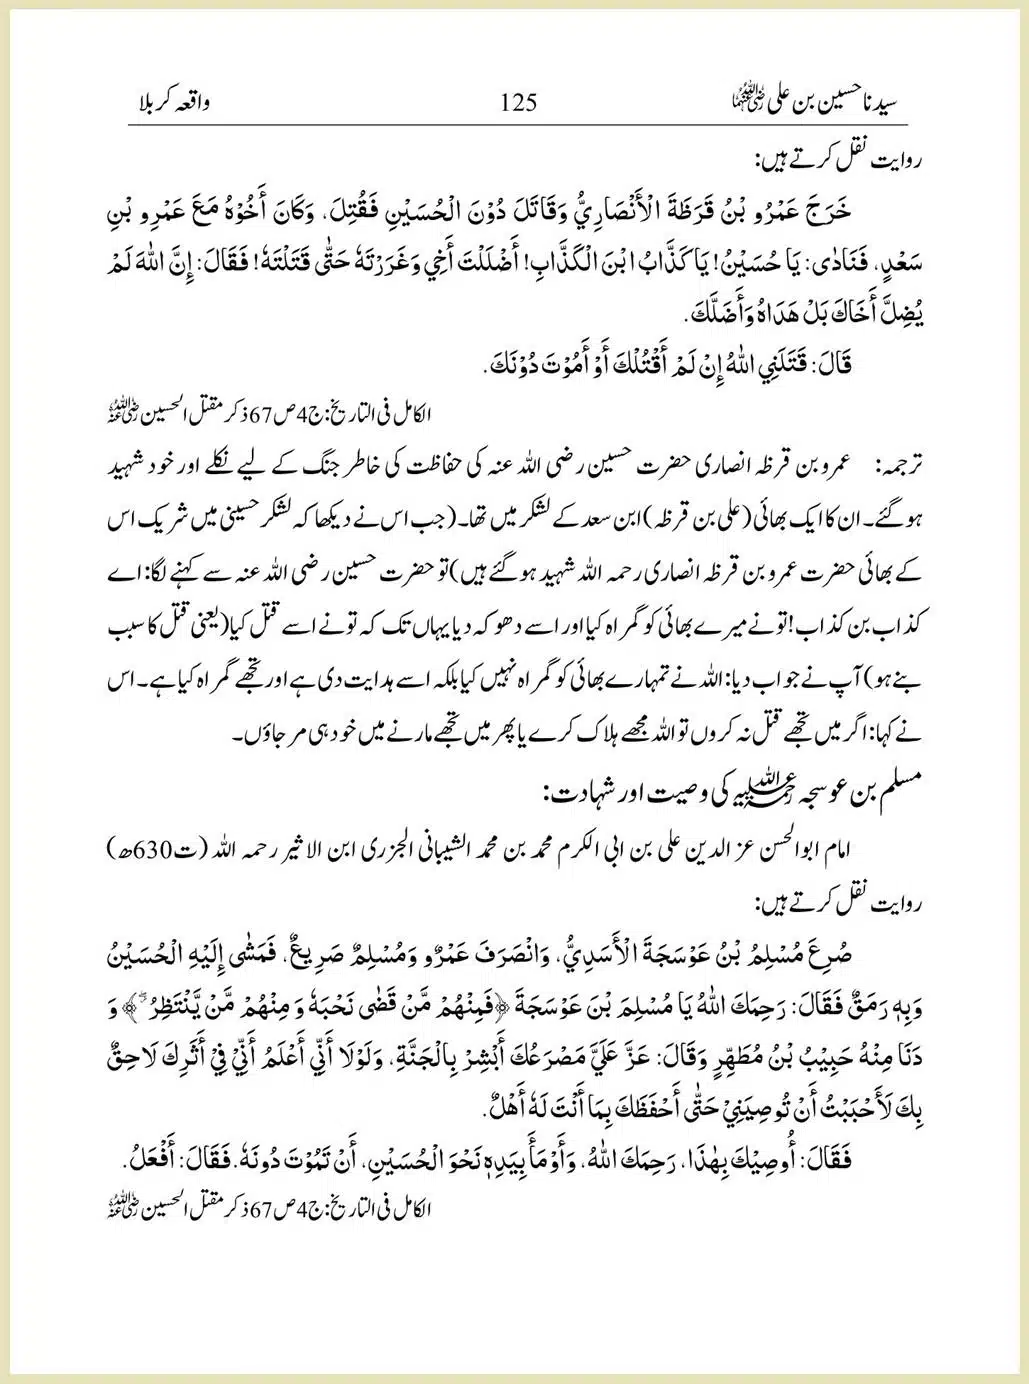 سیدنا حسین بن علی رضی اللہ عنہما 125 واقعہ کربلا
روایت نقل کرتے ہیں:
خَرَجَ عَمْرُو بْنُ قَرَظَةَ الْأَنْصَارِيُّ وَقَاتَلَ دُوْنَ الْحُسَيْنِ فَقُتِلَ، وَكَانَ أَخُوْهُ مَعَ عَمْرِو بْنِ
سَعْدٍ، فَنَادٰى: يَا حُسَيْنُ! يَا كَذَّابُ ابْنَ الْكَذَّابِ! أَضْلَلْتَ أَخِي وَغَرَرْتَهٗ حَتّٰى قَتَلْتَهٗ! فَقَالَ: إِنَّ اللهَ لَمْ
يُضِلَّ أَخَاكَ بَلْ هَدَاهُ وَأَضَلَّكَ.
قَالَ: قَتَلَنِي اللهُ إِنْ لَمْ أَقْتُلْكَ أَوْ أَمُوْتَ دُوْنَكَ.
الکامل فی التاریخ: ج4 ص67 ذکر مقتل الحسین رضی اللہ عنہ
ترجمہ: عمرو بن قرظہ انصاری حضرت حسین رضی اللہ عنہ کی حفاظت کی خاطر جنگ کے لیے نکلے اور خود شہید
ہو گئے۔ ان کا ایک بھائی (علی بن قرظہ) ابن سعد کے لشکر میں تھا۔ (جب اس نے دیکھا کہ لشکر حسینی میں شریک اس
کے بھائی حضرت عمرو بن قرظہ انصاری رحمہ اللہ شہید ہو گئے ہیں) تو حضرت حسین رضی اللہ عنہ سے کہنے لگا: اے
کذاب بن کذاب! تو نے میرے بھائی کو گمراہ کیا اور اسے دھوکہ دیا یہاں تک کہ تو نے اسے قتل کیا (یعنی قتل کا سبب
بنے ہو) آپ نے جواب دیا: اللہ نے تمہارے بھائی کو گمراہ نہیں کیا بلکہ اسے ہدایت دی ہے اور تجھے گمراہ کیا ہے۔ اس
نے کہا: اگر میں تجھے قتل نہ کروں تو اللہ مجھے ہلاک کرے یا پھر میں تجھے مارنے میں خود ہی مر جاؤں۔
مسلم بن عوسجہ رحمۃ اللہ علیہ کی وصیت اور شہادت:
امام ابو الحسن عز الدین علی بن ابی الکرم محمد بن محمد الشیبانی الجزری ابن الاثیر رحمہ اللہ (ت630ھ)
روایت نقل کرتے ہیں:
صُرِعَ مُسْلِمُ بْنُ عَوْسَجَةَ الْأَسَدِيُّ، وَانْصَرَفَ عَمْرٌو وَمُسْلِمٌ صَرِيعٌ، فَمَشٰى إِلَيْهِ الْحُسَيْنُ
وَبِهٖ رَمَقٌ فَقَالَ: رَحِمَكَ اللهُ يَا مُسْلِمَ بْنَ عَوْسَجَةَ ﴿فَمِنْهُمْ مَّنْ قَضٰى نَحْبَهٗ وَمِنْهُمْ مَّنْ يَّنْتَظِرُ ۖ﴾ وَ
دَنَا مِنْهُ حَبِيْبُ بْنُ مُطَهِّرٍ وَقَالَ: عَزَّ عَلَيَّ مَصْرَعُكَ أَبْشِرْ بِالْجَنَّةِ، وَلَوْلَا أَنِّي أَعْلَمُ أَنِّيْ فِيْ أَثَرِكَ لَاحِقٌ
بِكَ لَأَحْبَبْتُ أَنْ تُوصِيَنِيْ حَتّٰى أَحْفَظَكَ بِمَا أَنْتَ لَهٗ أَهْلٌ.
فَقَالَ: أُوصِيْكَ بِهٰذَا، رَحِمَكَ اللهُ، وَأَوْمَأَ بِيَدِهٖ نَحْوَ الْحُسَيْنِ، أَنْ تَمُوْتَ دُونَهٗ. فَقَالَ: أَفْعَلُ.
الکامل فی التاریخ: ج4 ص67 ذکر مقتل الحسین رضی اللہ عنہ